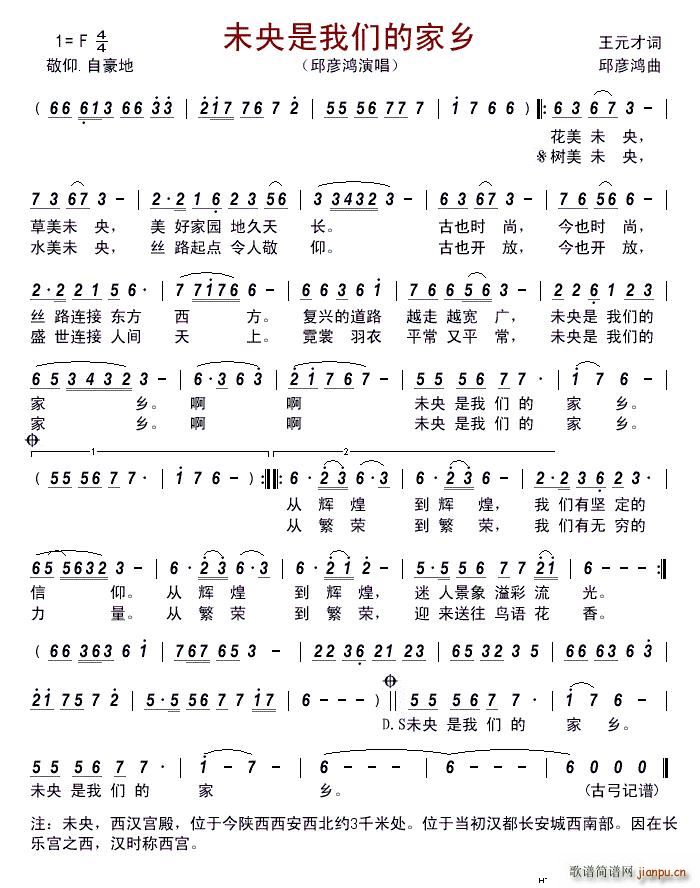 未央是我们的家乡
1= F 4/4
（邱彦鸿演唱）
王元才词
敬仰.自豪地
邱彦鸿曲
( 66 613 66 33 | 2117 76 7 2 | 55 56 77 7 | 1 7 66 - ) |: 6 3 67 3 |
花美 未 央，
树美 未 央，
7 3 67 3 - | 2·2 21 6 2 3 2 | 3 3432 3 - | 7 6 56 3 - | 7 6 56 3 - |
草美未 央， 美 好家园 地久天 长。 古也时 尚， 今也时 尚，
水美未 央， 丝 路起点 令人敬 仰。 古也开 放， 今也开 放，
2·2 21 5 6· | 7 7176 6 - | 66 36 6 1 | 76 6 56 3 - | 22 6 1 2 3 |
丝 路连接 东方 西 方。 复兴的道路 越走 越宽 广， 未央是 我们的
盛 世连接 人间 天 上。 霓裳 羽衣 平常 又平 常， 未央是 我们的
6 5 3432 3 - | 6·3 6 3 | 2·1 76 7 - | 55 56 77· | 1 7 6 - |
家 乡。 啊 啊 未央 是我 们 的 家 乡。
家 乡。 啊 啊 未央 是我 们 的 家 乡。
1 2
( 55 56 77· | 1 7 6 - ) :||: 6· 23 6·3 | 6· 23 6 - | 2·2 36 2 2 |
从 辉 煌 到 辉 煌， 我 们有坚 定的
从 繁 荣 到 繁 荣， 我 们有无 穷的
65 5632 3 - | 6· 23 6 - | 6· 23 6·3 | 5·5 56 7672 | 6 - - - :||
信 仰。 从 辉 煌 到 辉 煌， 迷 人景象 溢彩 流 光。
力 量。 从 繁 荣 到 繁 荣， 迎 来送往 鸟语 花 香。
( 66 363 6 1 | 767 65 3 - | 22 36 21 23 | 65 32 35 | 66 32 36 |
21 75 7 2 | 5·5 56 7 2 17 | 6 - - - ) || 55 56 77· | 1 7 6 - |
D.S未央 是我 们 的 家 乡。
55 56 77· | 1 - 7 - | 6 - - - | 6 - - - | 6 0 0 0 ||
未央 是我 们 的 家 乡。 (古弓记谱)
注：未央，西汉宫殿，位于今陕西西安西北约3千米处。位于当初汉都长安城西南部。因在长
乐宫之西，汉时称西宫。
歌谱简谱网
jianpu.cn